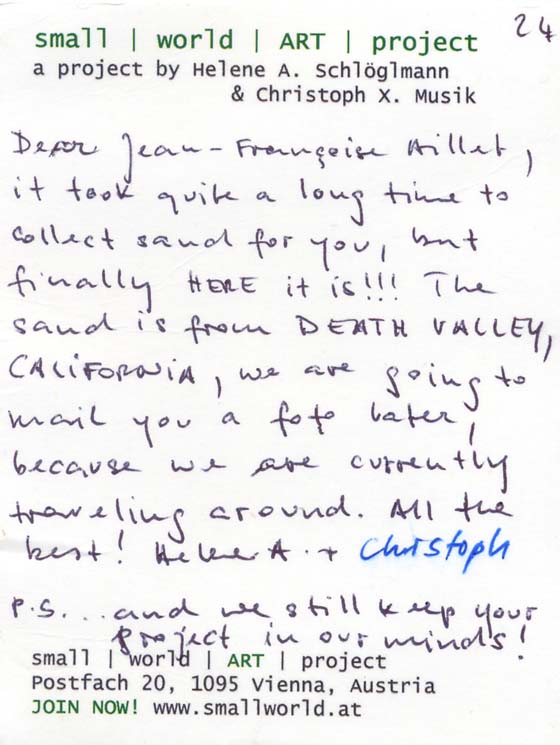 24
small | world | ART | project
a project by Helene A. Schlöglmann
& Christoph X. Musik
Dear Jean-Françoise Hillet,
it took quite a long time to
collect sand for you, but
finally HERE it is!!! The
sand is from DEATH VALLEY,
CALiFORNiA, we are going to
mail you a foto later,
because we are currently
traveling around. All the
best! Helene A. + Christoph
P.S... and we still keep your
project in our minds!
small | world | ART | project
Postfach 20, 1095 Vienna, Austria
JOIN NOW! www.smallworld.at